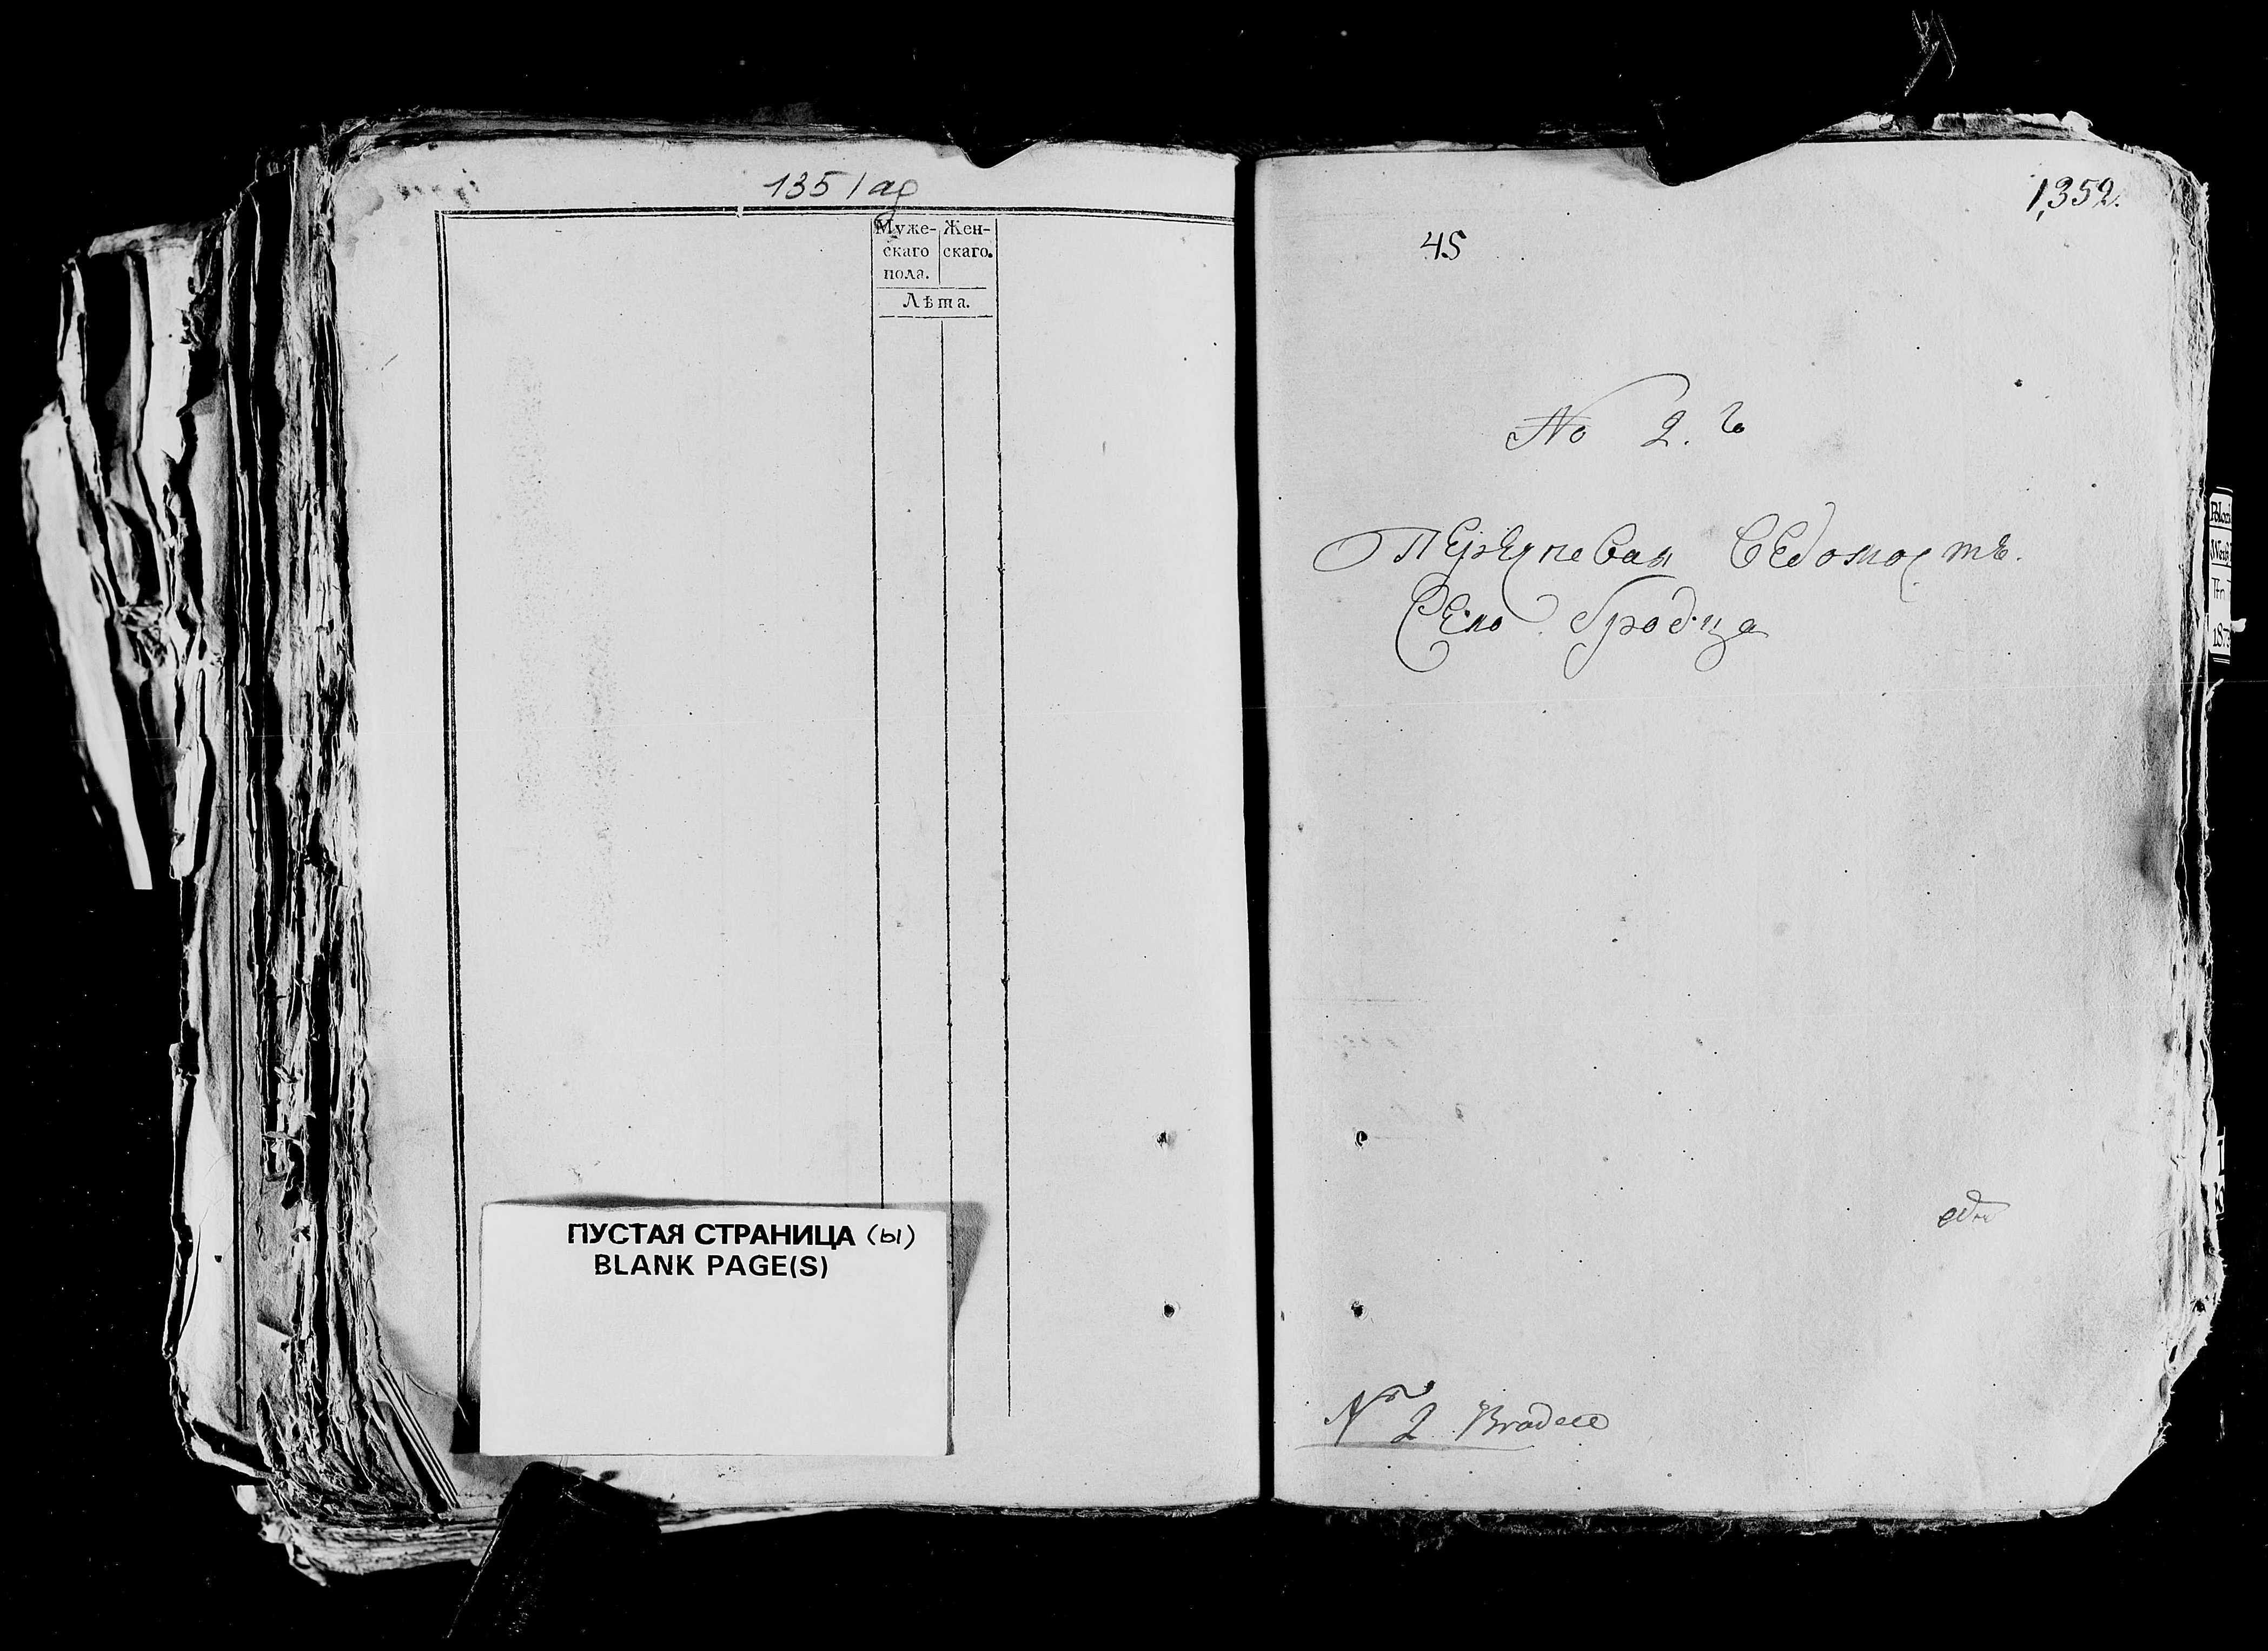 1351 ag
Муже-
скаго
пола.
Жен-
скаго.
Лѣта.
ПУСТАЯ СТРАНИЦА (ы)
BLANK PAGE(S)
1,352.
45
No 2. го
Перечневая Ведомость.
Село Бродца
№ 2 Brodece